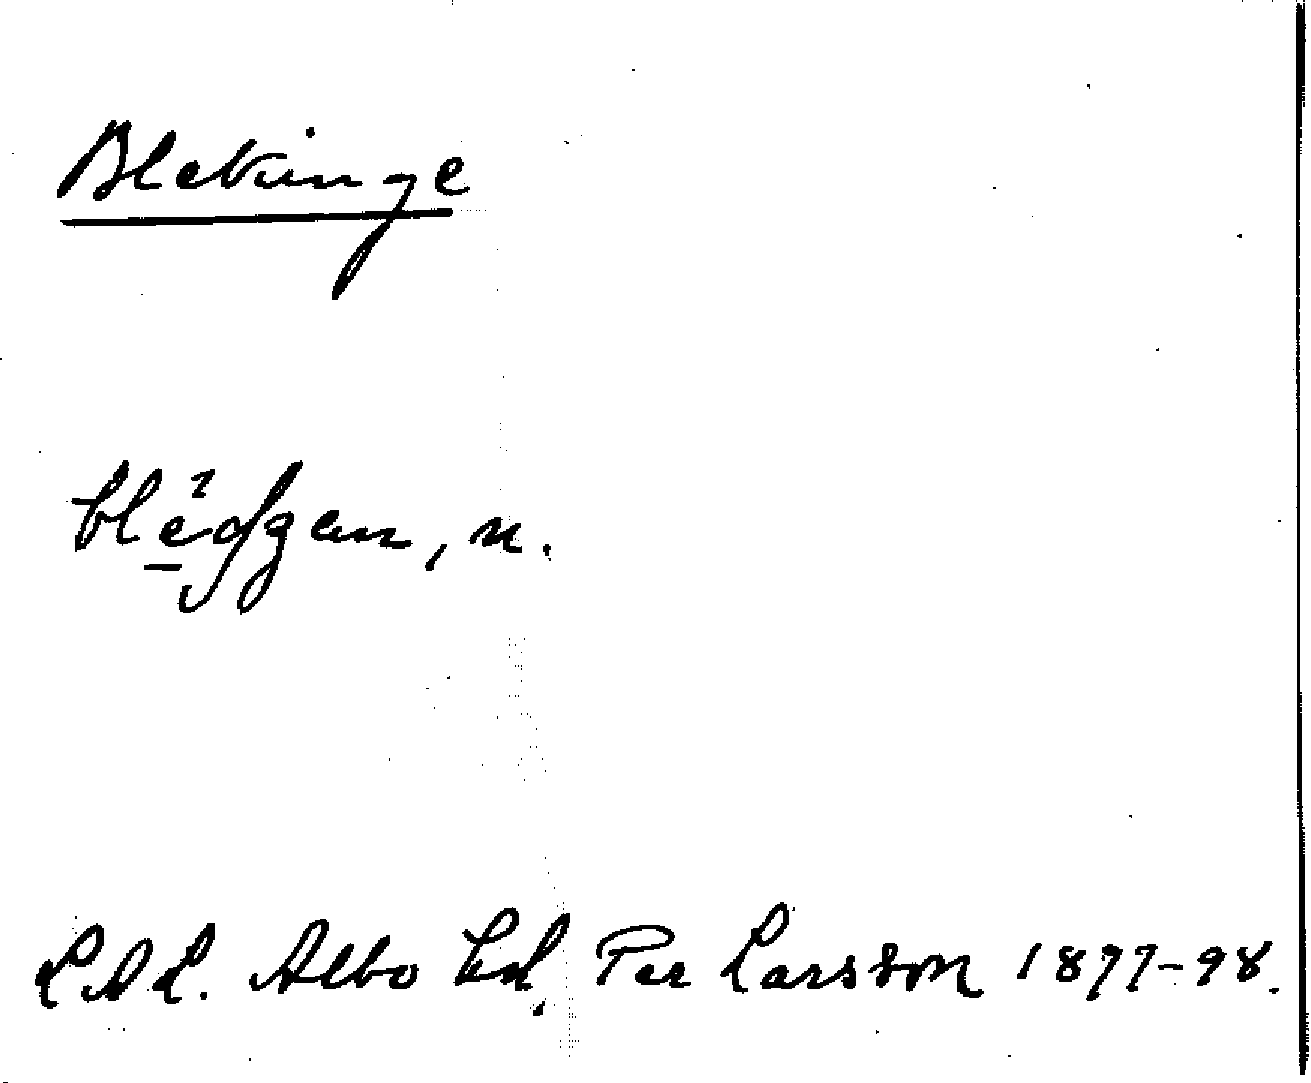 Blekinge
L.A.L. Albo hd, Per Larsson 1877-98.